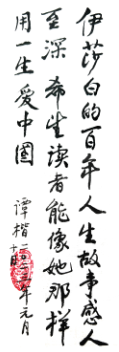 伊莎白的百年人生故事感人
至深 希望读者能像她那样
用一生爱中国
谭楷 二〇二二年元月